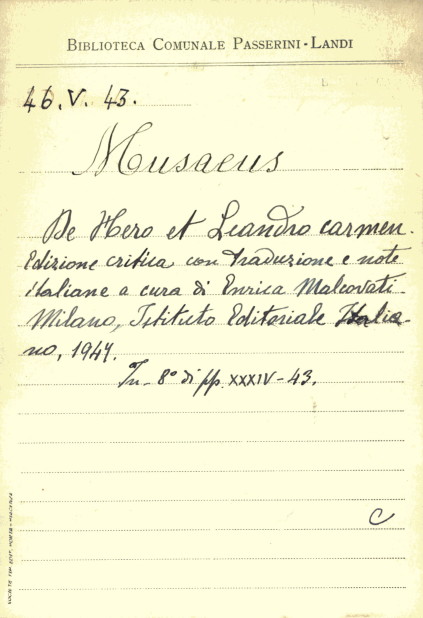 BIBLIOTECA COMUNALE PASSERINI-LANDI
46. V. 43.
Musaeus
De Hero et Leandro carmen.
Edizione critica con traduzione e note
italiane a cura di Enrica Malcovati.
Milano, Istituto Editoriale Italia-
no, 1947.
In-8° di pp. XXXIV-43.
C